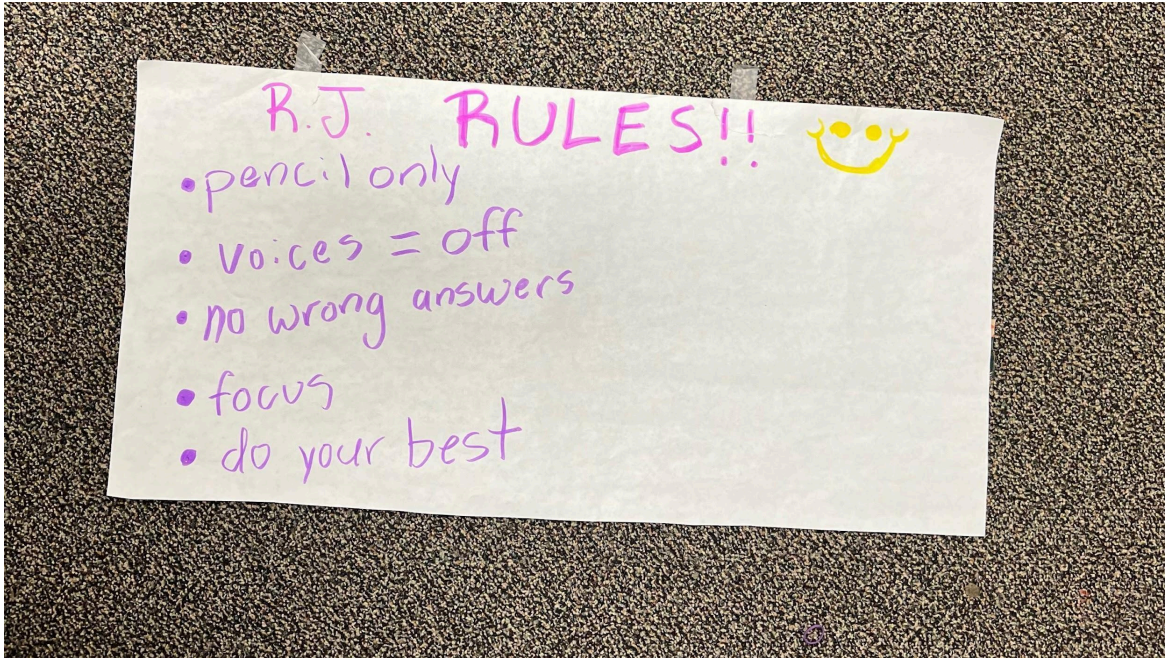 R.J. RULES!!
• pencil only
• voices = off
• no wrong answers
• focus
• do your best